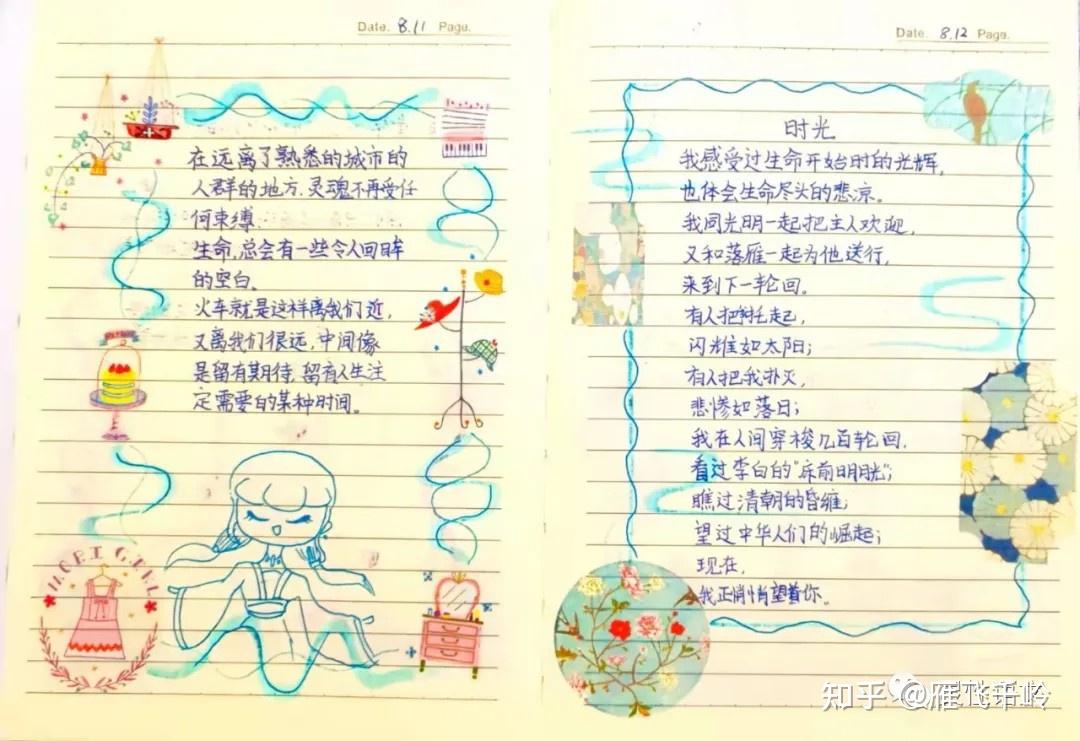 Date. 8.11 Page.
在远离了熟悉的城市的
人群的地方.灵魂不再受任
何束缚.
生命,总会有一些令人回眸
的空白。
火车就是这样离我们近,
又离我们很远,中间像
是留有期待,留有人生注
定需要的某种时间。
MORI GIRL
Date. 8.12 Page.
时光
我感受过生命开始时的光辉,
也体会生命尽头的悲凉。
我同光明一起把主人欢迎,
又和落雁一起为他送行,
来到下一轮回。
有人把我托起,
闪耀如太阳;
有人把我扑灭,
悲惨如落日;
我在人间穿梭几百轮回,
看过李白的"床前明月光";
瞧过清朝的昏缠;
望过中华人们的崛起;
现在,
我正悄悄望着你。
知乎 @雁飞千岭